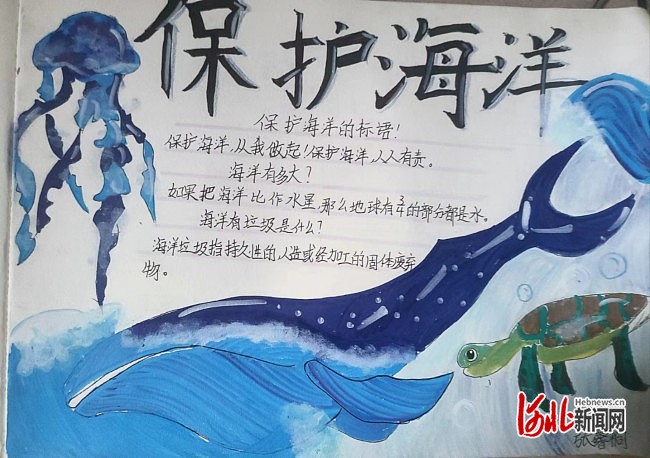 保护海洋
保护海洋的标语!
保护海洋,从我做起!保护海洋,人人有责。
海洋有多大?
如果把海洋比作水星,那么地球有3/4的部分都是水。
海洋有垃圾是什么?
海洋垃圾指持久性的人造或经加工的固体废弃
物。
Hebnews.cn
河北新闻网